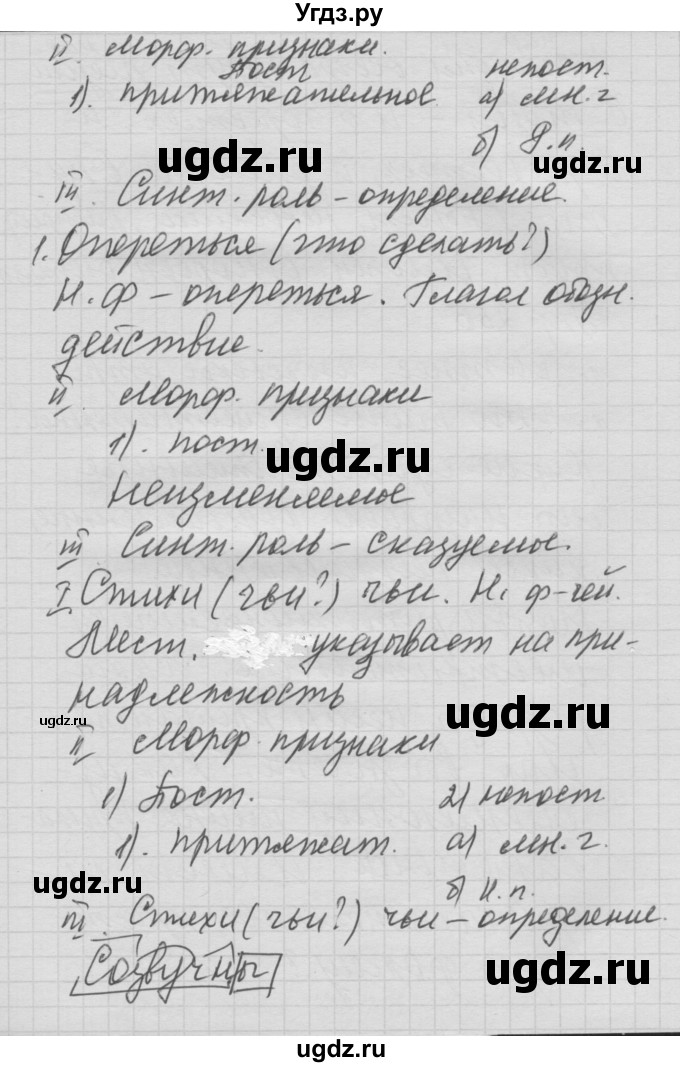 Угдз.ру
II. Морф. признаки.
Пост непост.
1). притяжательное. а) мн. ч
б) Р.п.
ugdz.ru ugdz.ru
III. Синт. роль – определение.
1. Опереться (что сделать?)
Н.ф – опереться. Глагол обозн.
действие.
ugdz.ru
II. Морф. признаки
1). пост.
ugdz.ru
Неизменяемое
III Синт. роль – сказуемое.
ugdz.ru
I Стихи (чьи?) чьи. Н. ф-чей.
Мест. указывает на при-
надлежность
ugdz.ru ugdz.ru
II Морф. признаки
1) Пост. 2) непост
1). притяжат. а) мн. ч.
б) И.п.
ugdz.ru
III. Стихи (чьи?) чьи – определение.
Созвучны
ugdz.ru
ugdz.ru